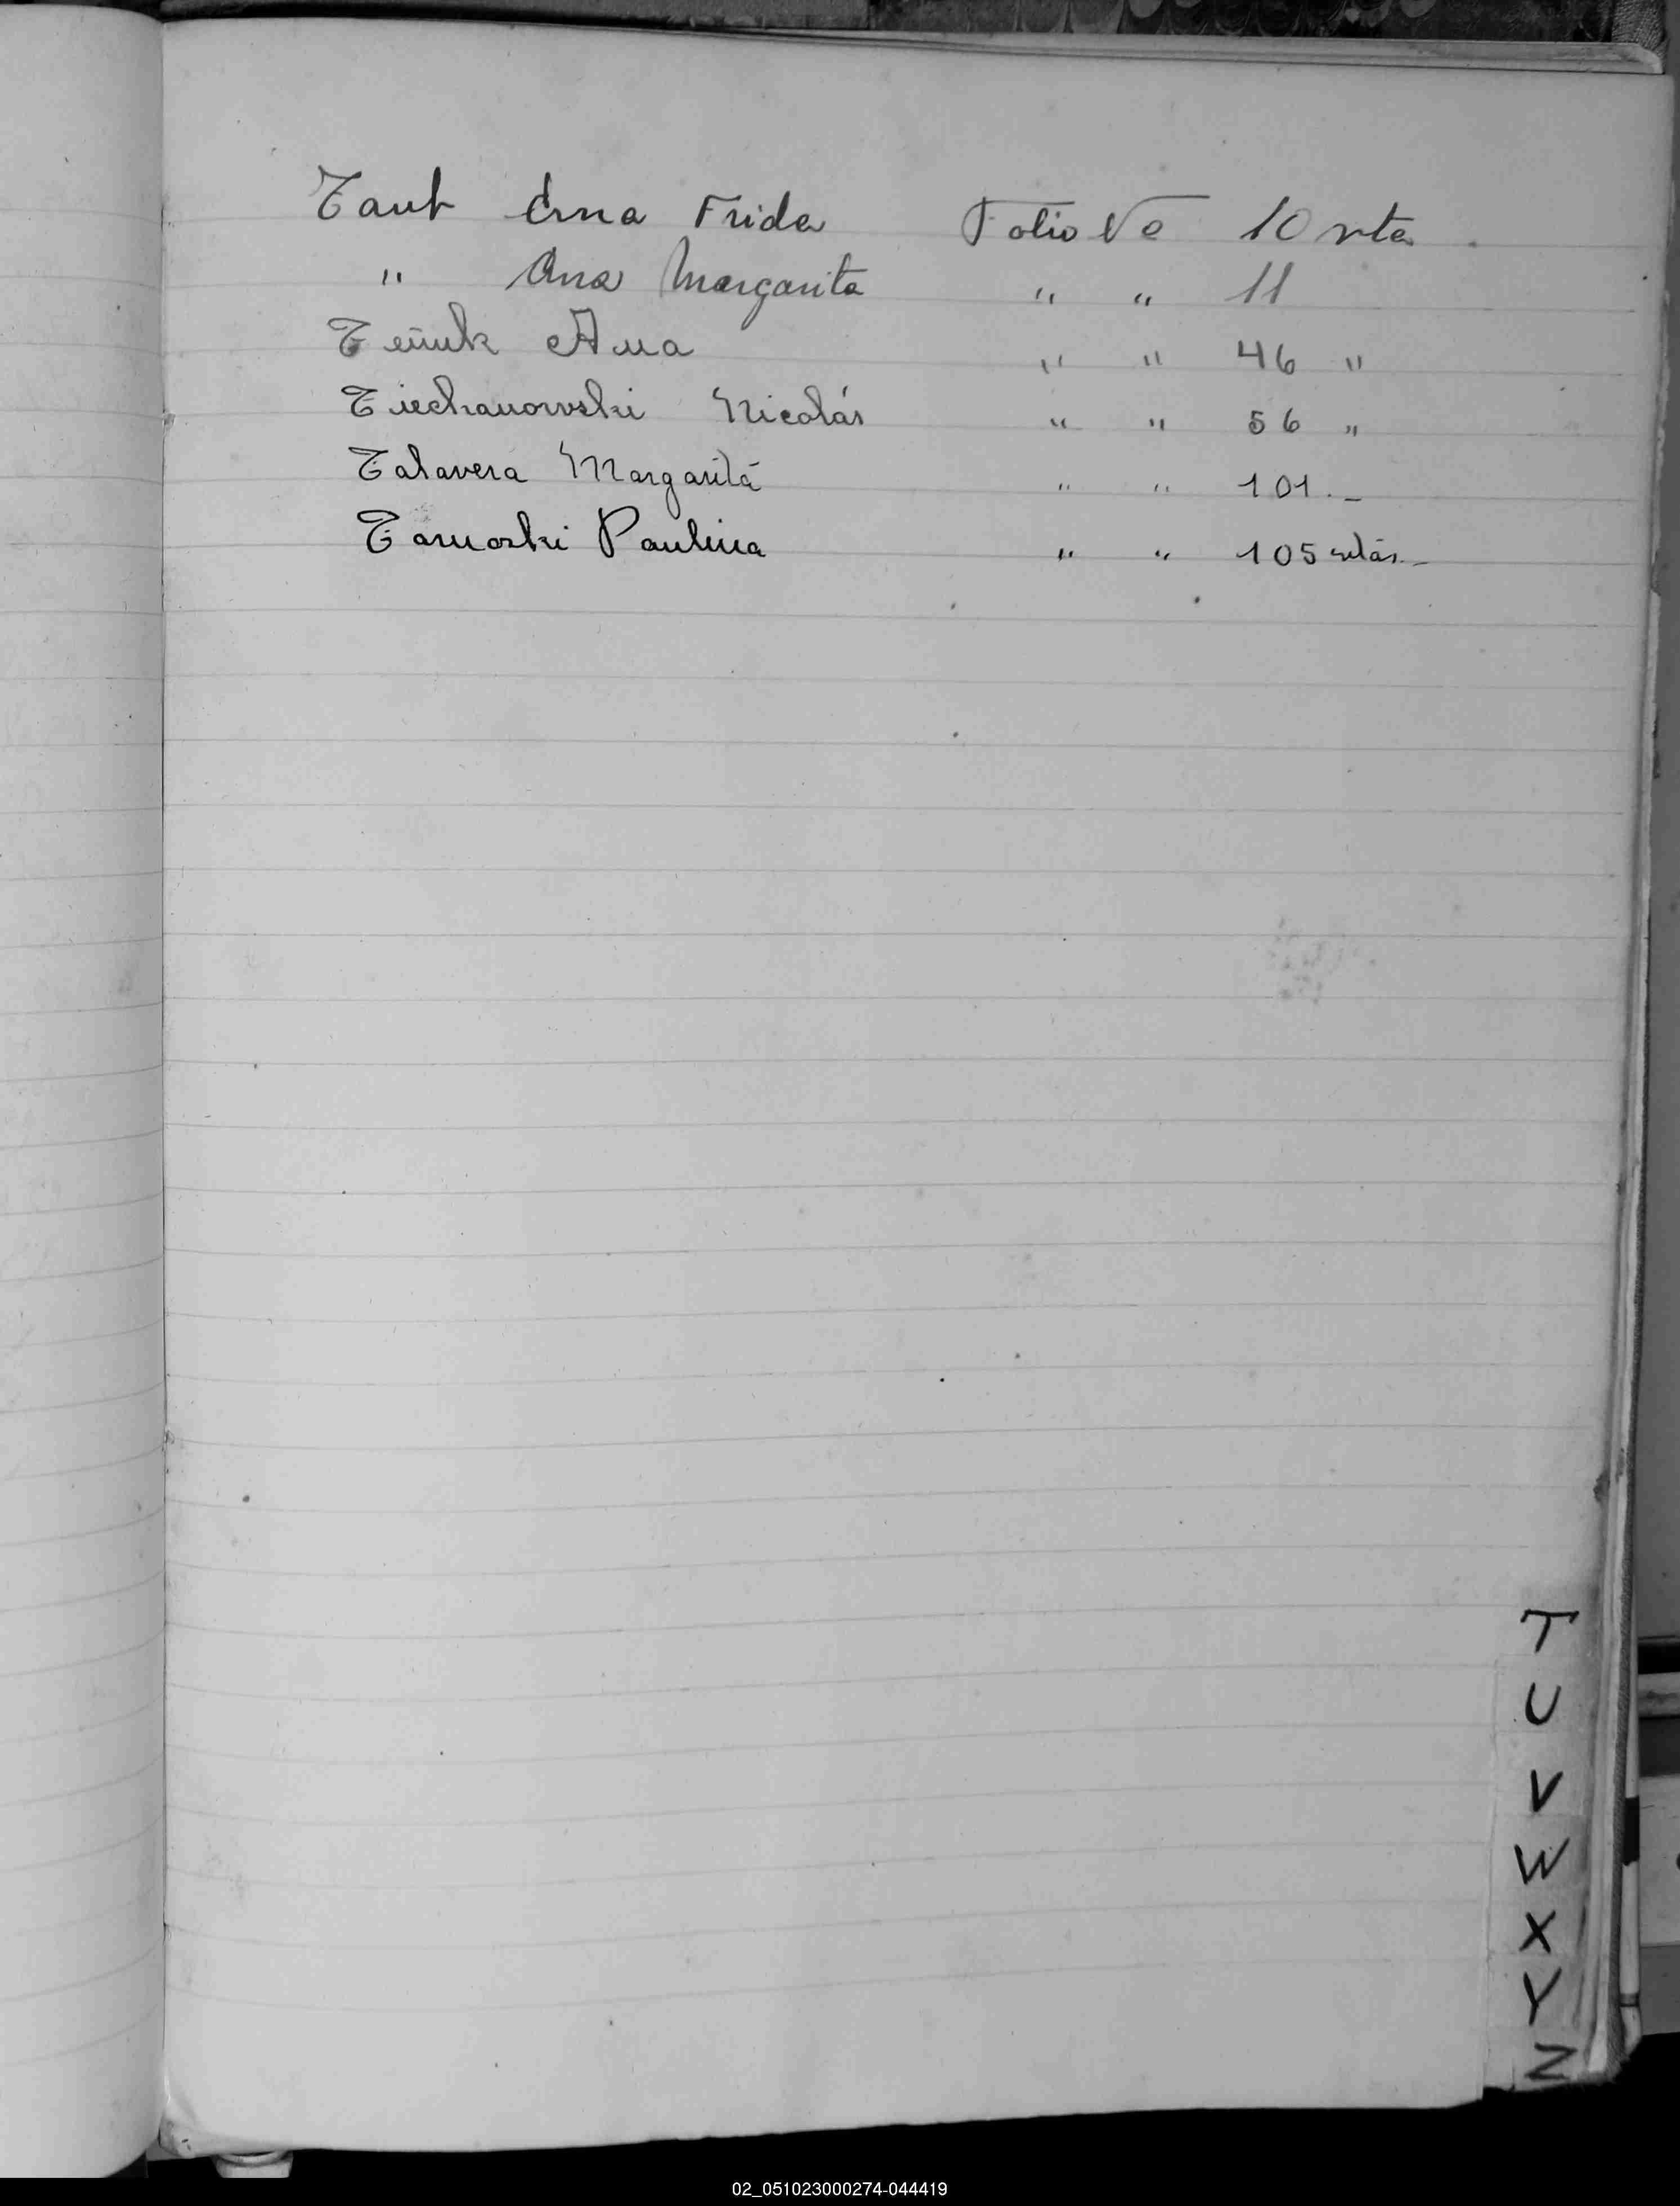 Taut Erna Frida Folio Nº 10 vta.
" Ana Margarita " " 11
Ana " " 46 "
Tiechanowski Nicolás " " 56 "
Talavera Margarita " " 101.-
Tarnoski Paulina " " 105 vltás.-
T
U
V
W
X
Y
Z
02_051023000274-044419